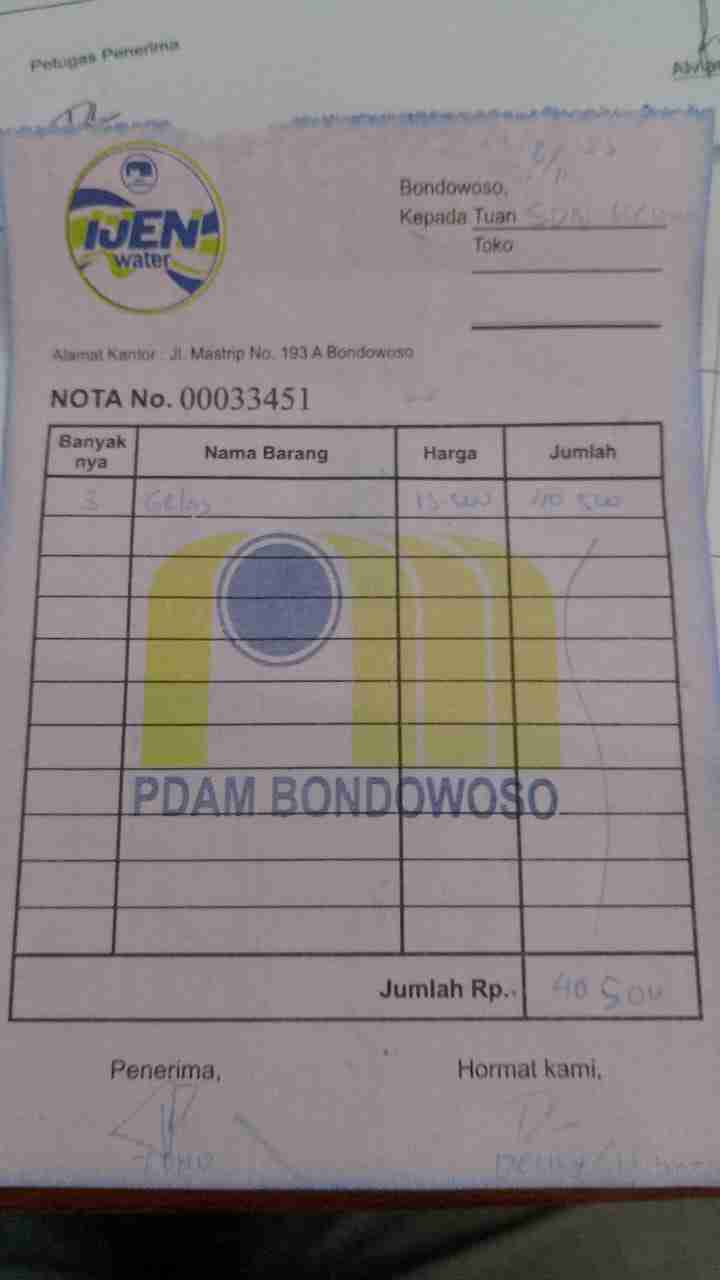 Petugas Penerima
IJEN
water
Bondowoso,
Kepada Tuan SDN
Toko
Alamat Kantor : Jl. Mastrip No. 193 A Bondowoso
NOTA No. 00033451
Banyak nya Nama Barang Harga Jumlah
3 Gelas 13 500 40 500
PDAM BONDOWOSO
Jumlah Rp.. 40 500
Penerima, Hormat kami,